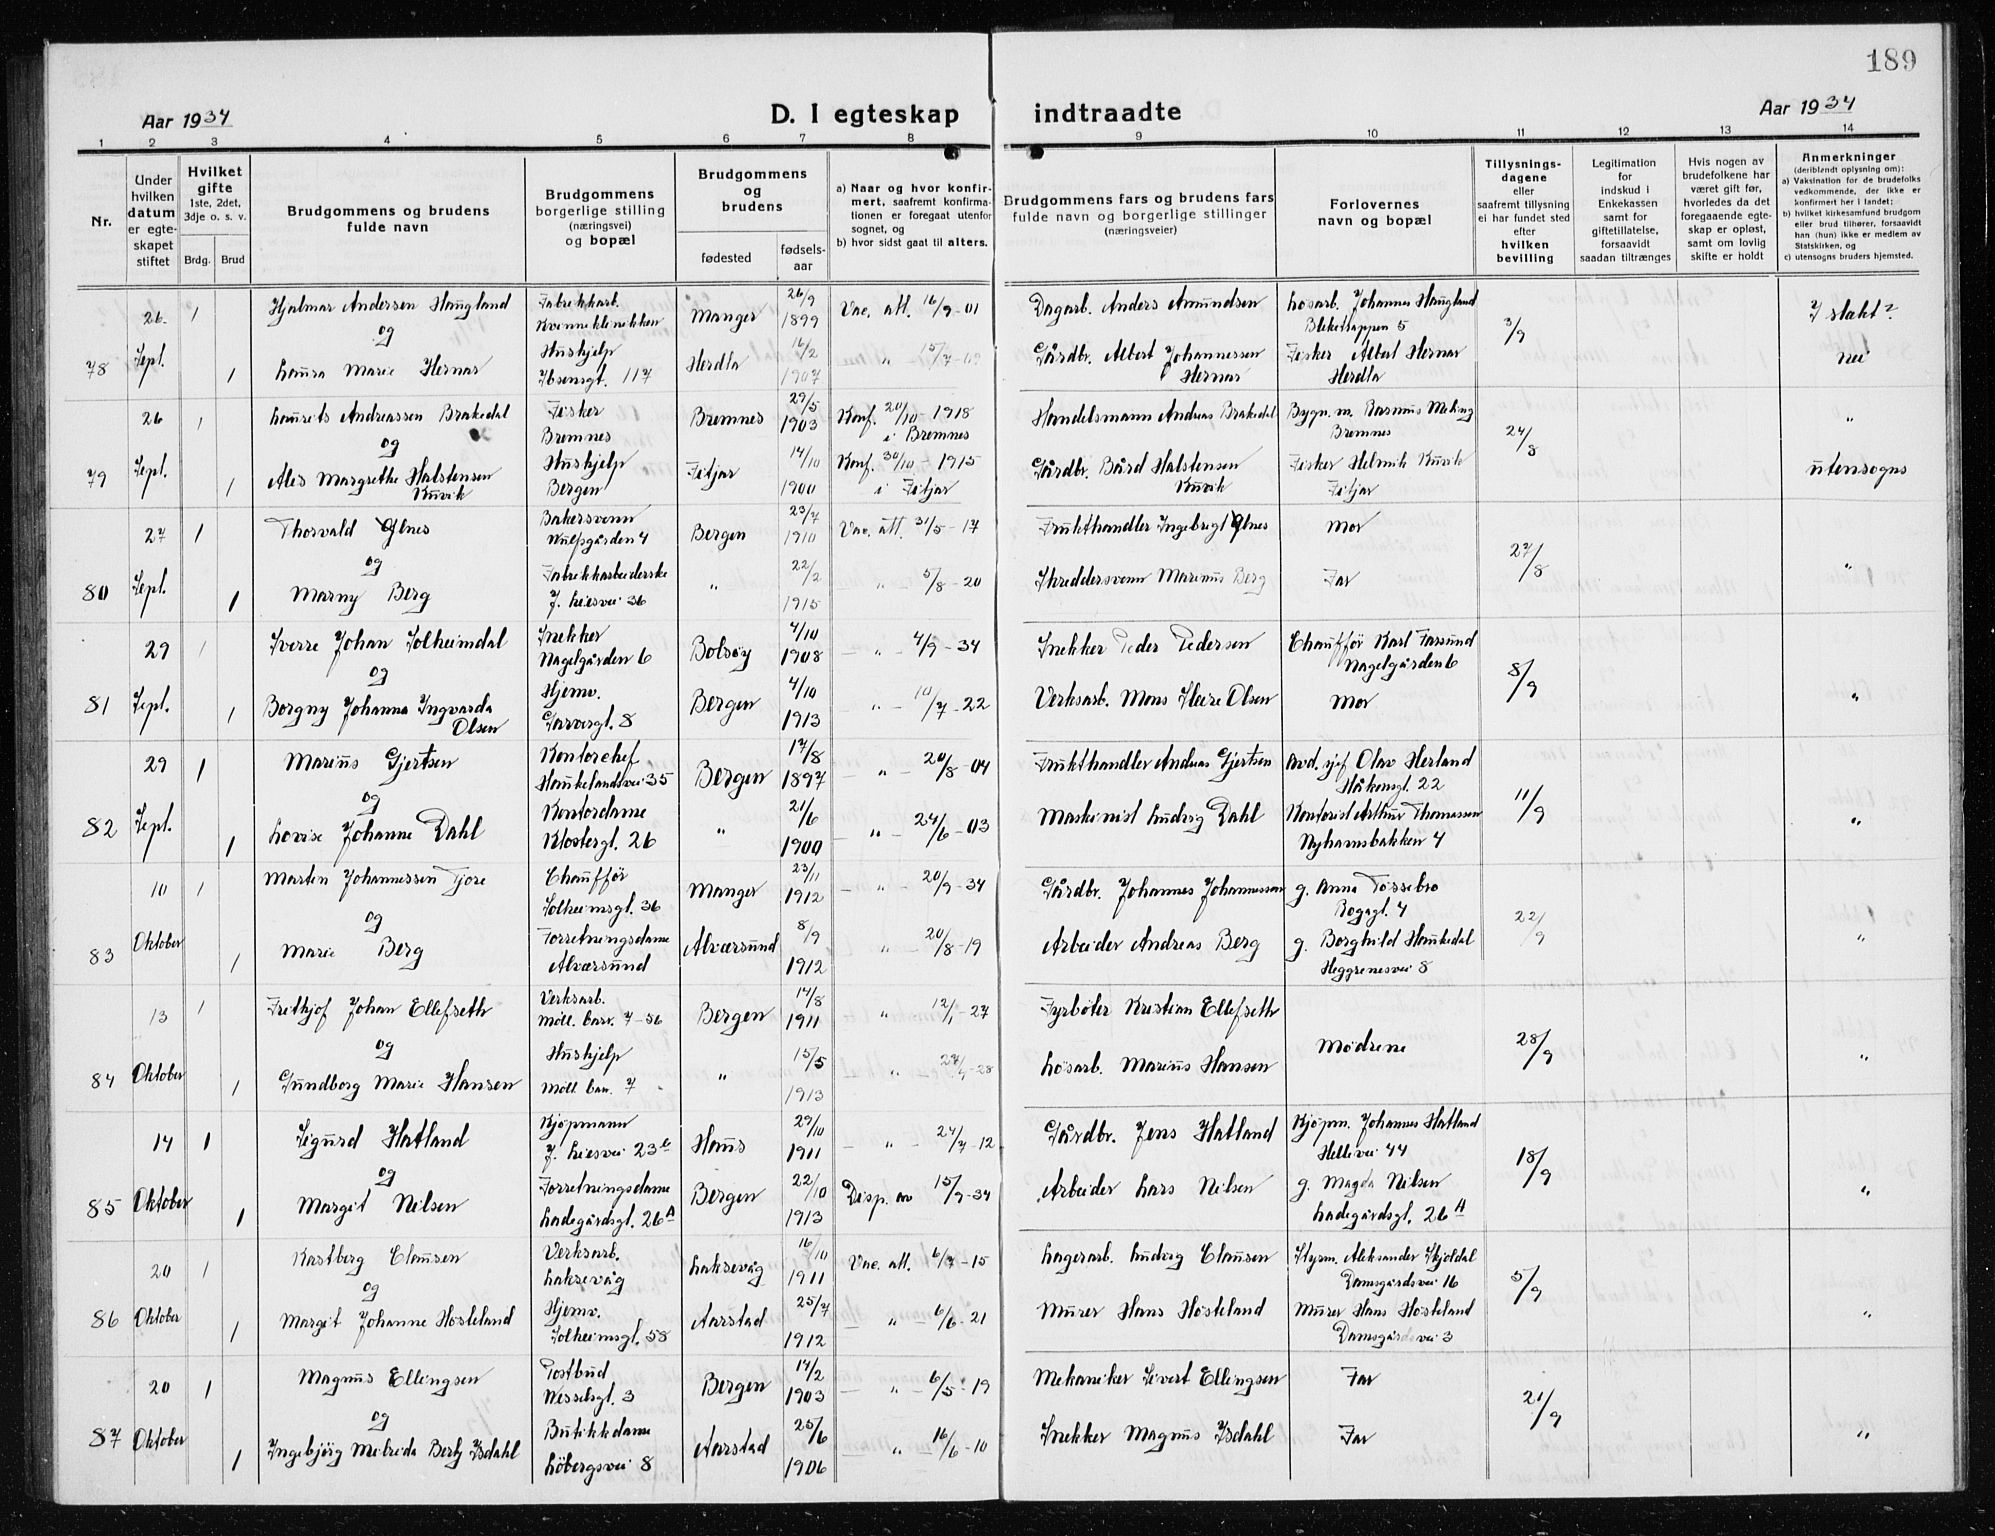 189
Aar 1934
D. I egteskap indtraadte
Aar 1934
1 2 3 4 5 6 7 8 9 10 11 12 13 14
Nr.
Under hvilken datum er egteskapet stiftet
Hvilket gifte 1ste, 2det, 3dje o. s. v.
Brdg. Brud
Brudgommens og brudens fulde navn
Brudgommens borgerlige stilling (næringsvei) og bopæl
Brudgommens og brudens
fødested fødsels-aar
a) Naar og hvor konfirmert, saafremt konfirmationen er foregaat utenfor sognet, og
b) hvor sidst gaat til alters.
Brudgommens fars og brudens fars fulde navn og borgerlige stillinger (næringsveier)
Forlovernes navn og bopæl
Tillysningsdagene eller saafremt tillysning ei har fundet sted efter hvilken bevilling
Legitimation for indskud i Enkekassen samt for giftetillatelse, forsaavidt saadan tiltrænges
Hvis nogen av brudefolkene har været gift før, hvorledes da det foregaaende egteskap er opløst, samt om lovlig skifte er holdt
Anmerkninger (deriblandt oplysning om):
a) Vaksination for de brudefolks vedkommende, der ikke er konfirmert her i landet;
b) hvilket kirkesamfund brudgom eller brud tilhører, forsaavidt han (hun) ikke er medlem av Statskirken, og
c) utensogns bruders hjemsted.
26 1 Hjalmar Andersen Haugland Fabrikkarb. Kvinneklinikken Manger 26/9 1899 Vac. att. 16/9-01 Dagarb. Anders Amundsen Løsarb. Johannes Haugland Bleketrappen 5 3/9 I slekt?
og
78 Sept. 1 Laura Marie Hernar Hushjelp Ibsensgt. 117 Herdla 16/2 1907 Gårdbr. Albert Johannessen Hernar Fisker Albert Hernar Herdla nei
26 1 Laurits Andreassen Brakedal Fisker Bremnes Bremnes 29/5 1903 Konf. 20/10-1918 i Bremnes Handelsmann Andreas Brakedal Bygn. m. Rasmus Meling Bremnes 24/8 "
og
79 Sept. 1 Ales Margrethe Halstensen Ruvik Hushjelp Bergen Fitjar 14/10 1900 Konf. 30/10-1915 i Fitjar Gårdbr. Bård Halstensen Ruvik Fisker Helmik Ruvik Fitjar utensogns
27 1 Thorvald Glnes Bakersvenn Wulfsgården 4 Bergen 23/7 1910 Vac. att. 31/5-17 Frukthandler Ingebrigt Mor 27/8
og
80 Sept. 1 Marny Berg Fabrikkarbeiderske J. Liesvei 36 " 22/2 1915 " 5/8-20 Skreddersvenn Marinus Berg Far "
29 1 Sverre Johan Solheimdal Snekker Nagelgården 6 Bolsøy 4/10 1908 - " - 4/9-34 Snekker Peder Pedersen Chauffør Karl Farsund Nagelgården 6 8/9
og
81 Sept. 1 Borgny Johanna Ingvarda Olsen Hjemv. Garvergt. 8 Bergen 4/10 1913 - " - 10/7-22 Verksarb. Mons Olsen Mor "
29 1 Marius Gjertsen Kontorchef Haukelandsvei 35 Bergen 17/8 1897 - " - 20/8-04 Frukthandler Andreas Gjertsen Avd. sjef Olav Herland Håkonsgt. 22 11/9
og
82 Sept. 1 Lovise Johanne Dahl Kontordame Klostergt. 26 " 21/6 1900 - " - 24/6-03 Maskinist Ludvig Dahl Kontorist Arthur Thomassen Nyhavnsbakken 4 "
10 1 Martin Johannessen Tjore Chauffør Solheimsgt. 36 Manger 23/11 1912 - " - 20/9-34 Gårdbr. Johannes Johannessen g. Anna Tossebro Bogagt. 4 22/9
og
83 Oktober 1 Marie Berg Forretningsdame Alværsund Alværsund 8/9 1912 " 20/8-19 Arbeider Andreas Berg g. Borghild Haukedal Heggrenesvei 8 "
13 1 Frithjof Johan Ellefseth Verksarb. Møll. barr. 7-56 Bergen 14/8 1911 " 12/1-27 Fyrbøter Kristian Ellefseth Mødrene 28/9
og
84 Oktober 1 Gundborg Marie Hansen Hushjelp Møll. bar. 7 " 15/5 1913 - " - Løsarb. Marius Hansen "
14 1 Sigurd Hatland Kjøpmann J. Liesvei 23 Haus 29/10 1911 - " - 24/7-12 Gårdbr. Jens Hatland Kjøpm. Johannes Hatland Hellevei 44 18/9
og
85 Oktober 1 Margit Nilsen Forretningsdame Ladegårdsgt. 26A Bergen 22/10 1913 Disp. av 15/9-34 Arbeider Lars Nilsen g. Magda Nilsen Ladegårdsgt. 26A "
20 1 Kastberg Clausen Verksarb. Laksevåg Laksevåg 16/10 1911 Vac. att. 6/7-15 Lagerarb. Ludvig Clausen Styrm. Aleksander Skjoldal Damsgårdsvei 16 5/9
og
86 Oktober 1 Margit Johanne Hosteland Hjemv. Solheimsgt. 58 Aarstad 25/7 1912 - " - 6/6-21 Murer Hans Hosteland Murer Hans Hosteland Damsgårdsvei 3 "
20 1 Magnus Ellingsen Postbud Wesselsgt. 3 Bergen 14/2 1903 - " - 6/5-19 Mekaniker Sivert Ellingsen Far 21/9
og
87 Oktober 1 Ingebjørg Berly Isdahl Butikkdame Løbergsvei 8 Aarstad 25/6 1906 " 16/6-10 Snekker Magnus Isdahl Far "